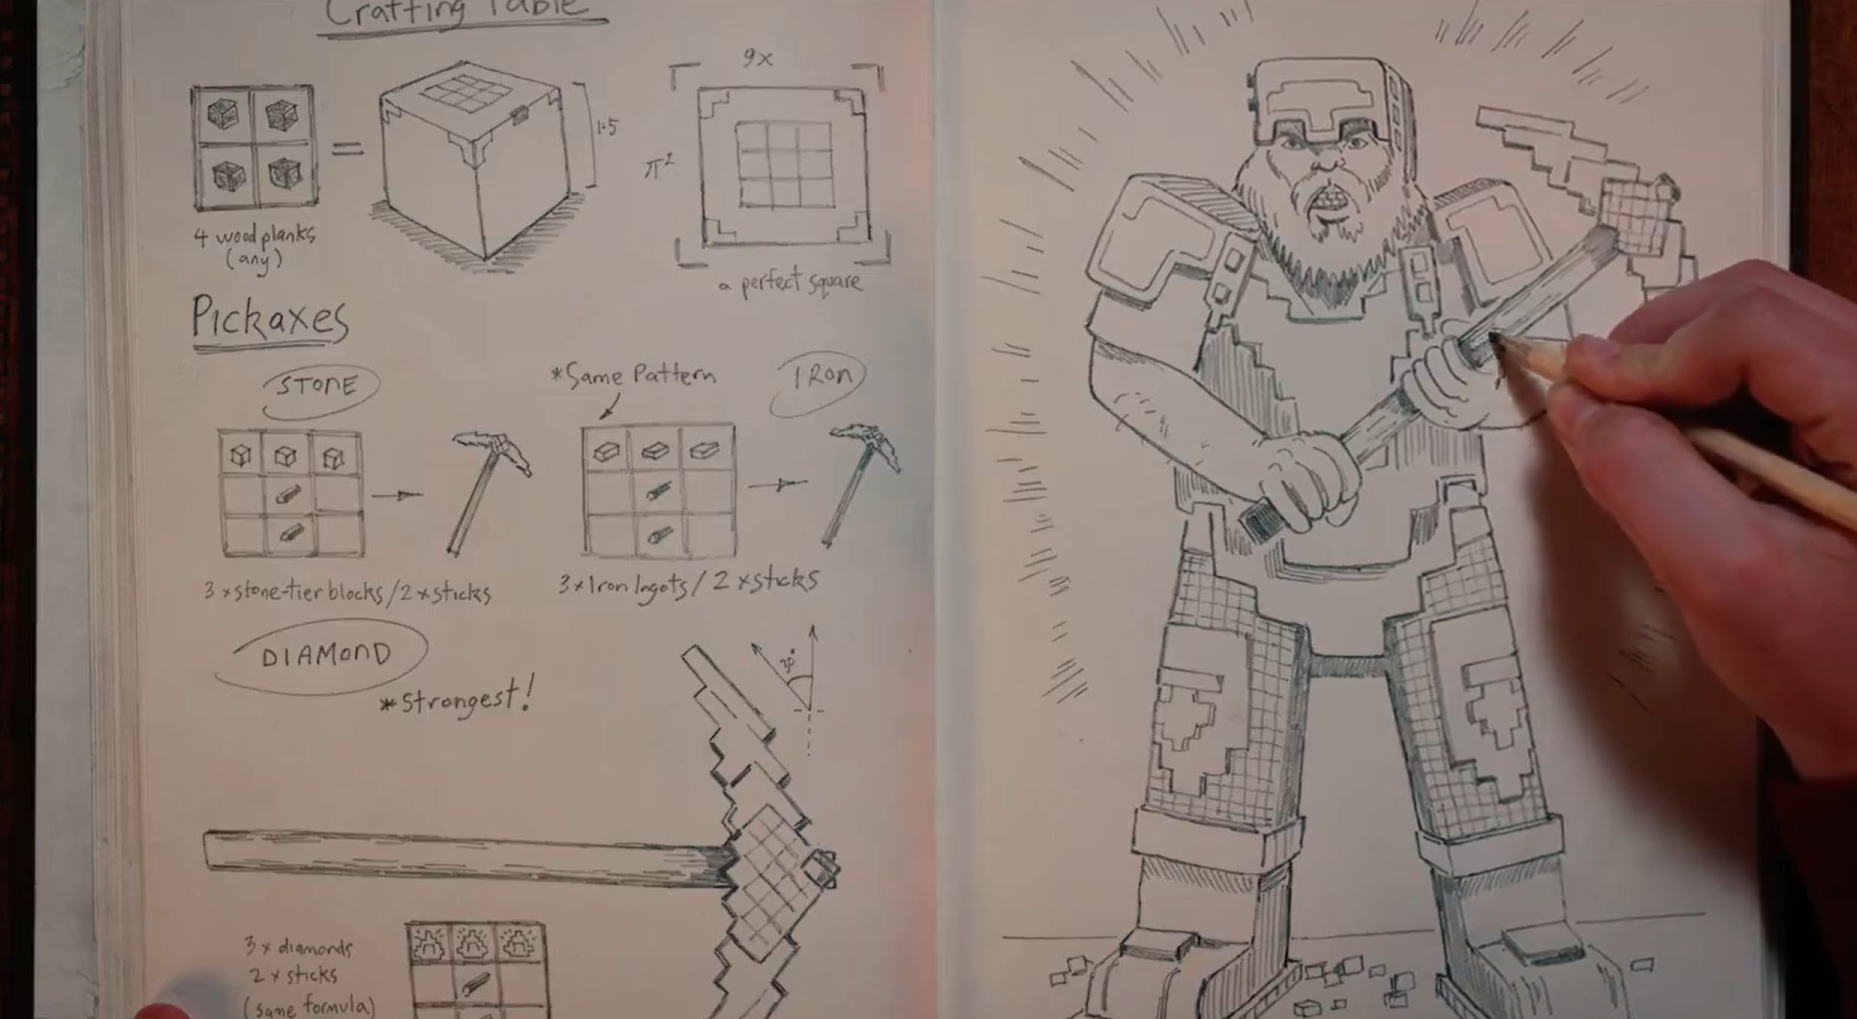 Crafting Table
9x
1.5
=
π²
4 wood planks
(any)
a perfect square
Pickaxes
STONE
*Same Pattern
IRON
3 x stone-tier blocks / 2 x sticks
3 x Iron Ingots / 2 x sticks
DIAMOND
*Strongest!
3 x diamonds
2 x sticks
(same formula)